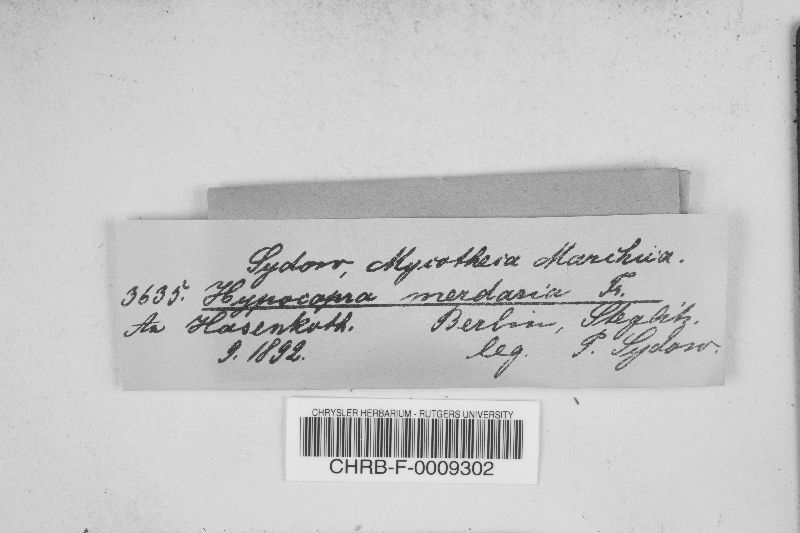 Sydow, Mycotheca Marchica.
3635. Hypocopra merdaria Fr.
An Hasenkoth. Berlin, Steglitz.
9. 1892. leg. P. Sydow.
CHRYSLER HERBARIUM - RUTGERS UNIVERSITY
CHRB-F-0009302